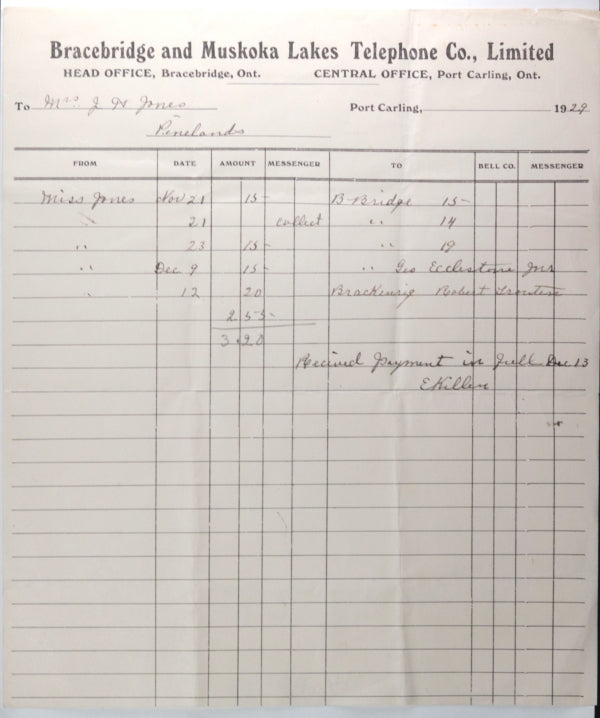 Bracebridge and Muskoka Lakes Telephone Co., Limited
HEAD OFFICE, Bracebridge, Ont. CENTRAL OFFICE, Port Carling, Ont.
To Mrs J W Jones Port Carling, 1929
Pinelands
FROM DATE AMOUNT MESSENGER TO BELL CO. MESSENGER
Miss Jones Nov 21 15- B-Bridge 15-
" 21 collect " 14
" 23 15- " 19
" Dec 9 15- " Geo Ecclestone Jnr
" 12 20 Brackenrig Robert
2 55-
3.20
Recived Payment in full Dec 13
E Killen